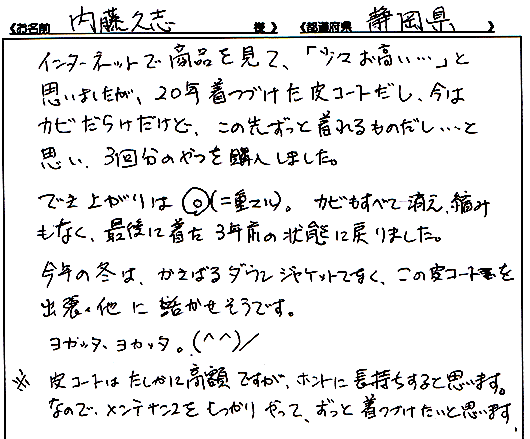 《お名前 内藤久志 様》《都道府県 静岡県 》
インターネットで商品を見て、「少々お高い…」と
思いましたが、20年着つづけた皮コートだし、今は
カビだらけだけど、この先ずっと着れるものだし…と
思い、3回分のやつを購入しました。
でき上がりは◎(二重マル)。カビもすべて消え、縮み
もなく、最後に着た3年前の状態に戻りました。
今年の冬は、かさばるダウンジャケットでなく、この皮コートを
出張・他に活かせそうです。
ヨカッタ、ヨカッタ。(^^)/
※ 皮コートはたしかに高額ですが、ホントに長持ちすると思います。
なので、メンテナンスをしっかりやって、ずっと着つづけたいと思います。